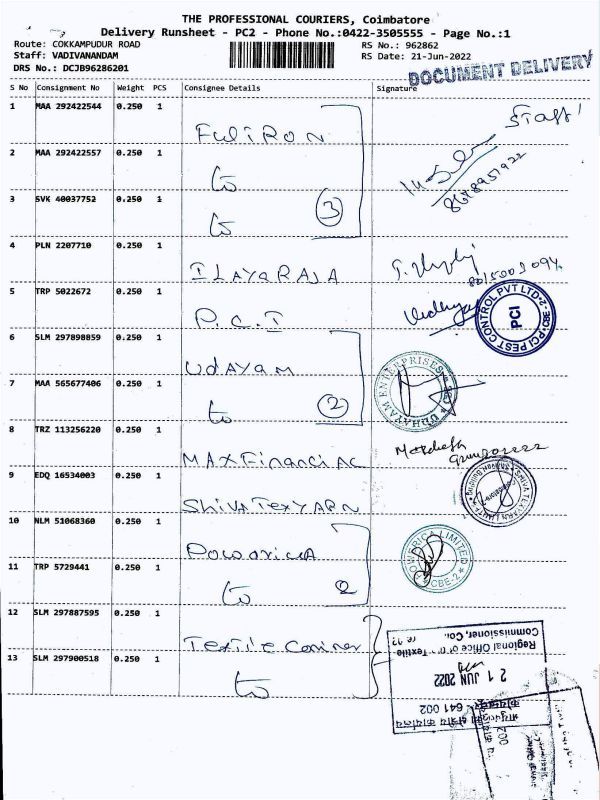 THE PROFESSIONAL COURIERS, Coimbatore
Delivery Runsheet - PC2 - Phone No.:0422-3505555 - Page No.:1
Route: COKKAMPUDUR ROAD
RS No.: 962862
Staff: VADIVANANDAM
RS Date: 21-Jun-2022
DRS No.: DCJB96286201
DOCUMENT DELIVERY
S No Consignment No Weight PCS Consignee Details Signature
1 MAA 292422544 0.250 1 FulIRON Staff
2 MAA 292422557 0.250 1 to
3 SVK 40037752 0.250 1 to 3
4 PLN 2207710 0.250 1 ILAYARAJA
5 TRP 5022672 0.250 1 P.C.I
PCI PEST CONTROL PVT LTD CBE-2
PCI
6 SLM 297898859 0.250 1 UdAYAM
7 MAA 565677406 0.250 1 to 2
UDHAYAM ENTERPRISES CBE
8 TRZ 113256220 0.250 1 MAX Financial
9 EDQ 16534003 0.250 1 Shiva TexYARN
SHIVA TEXYARN LIMITED
10 NLM 51068360 0.250 1
11 TRP 5729441 0.250 1 to 2
LIMITED CBE-2
12 SLM 297887595 0.250 1 Textile
13 SLM 297900518 0.250 1 to
Regional Office of the Textile
Commissioner, Co..
21 JUN 2022
641 002